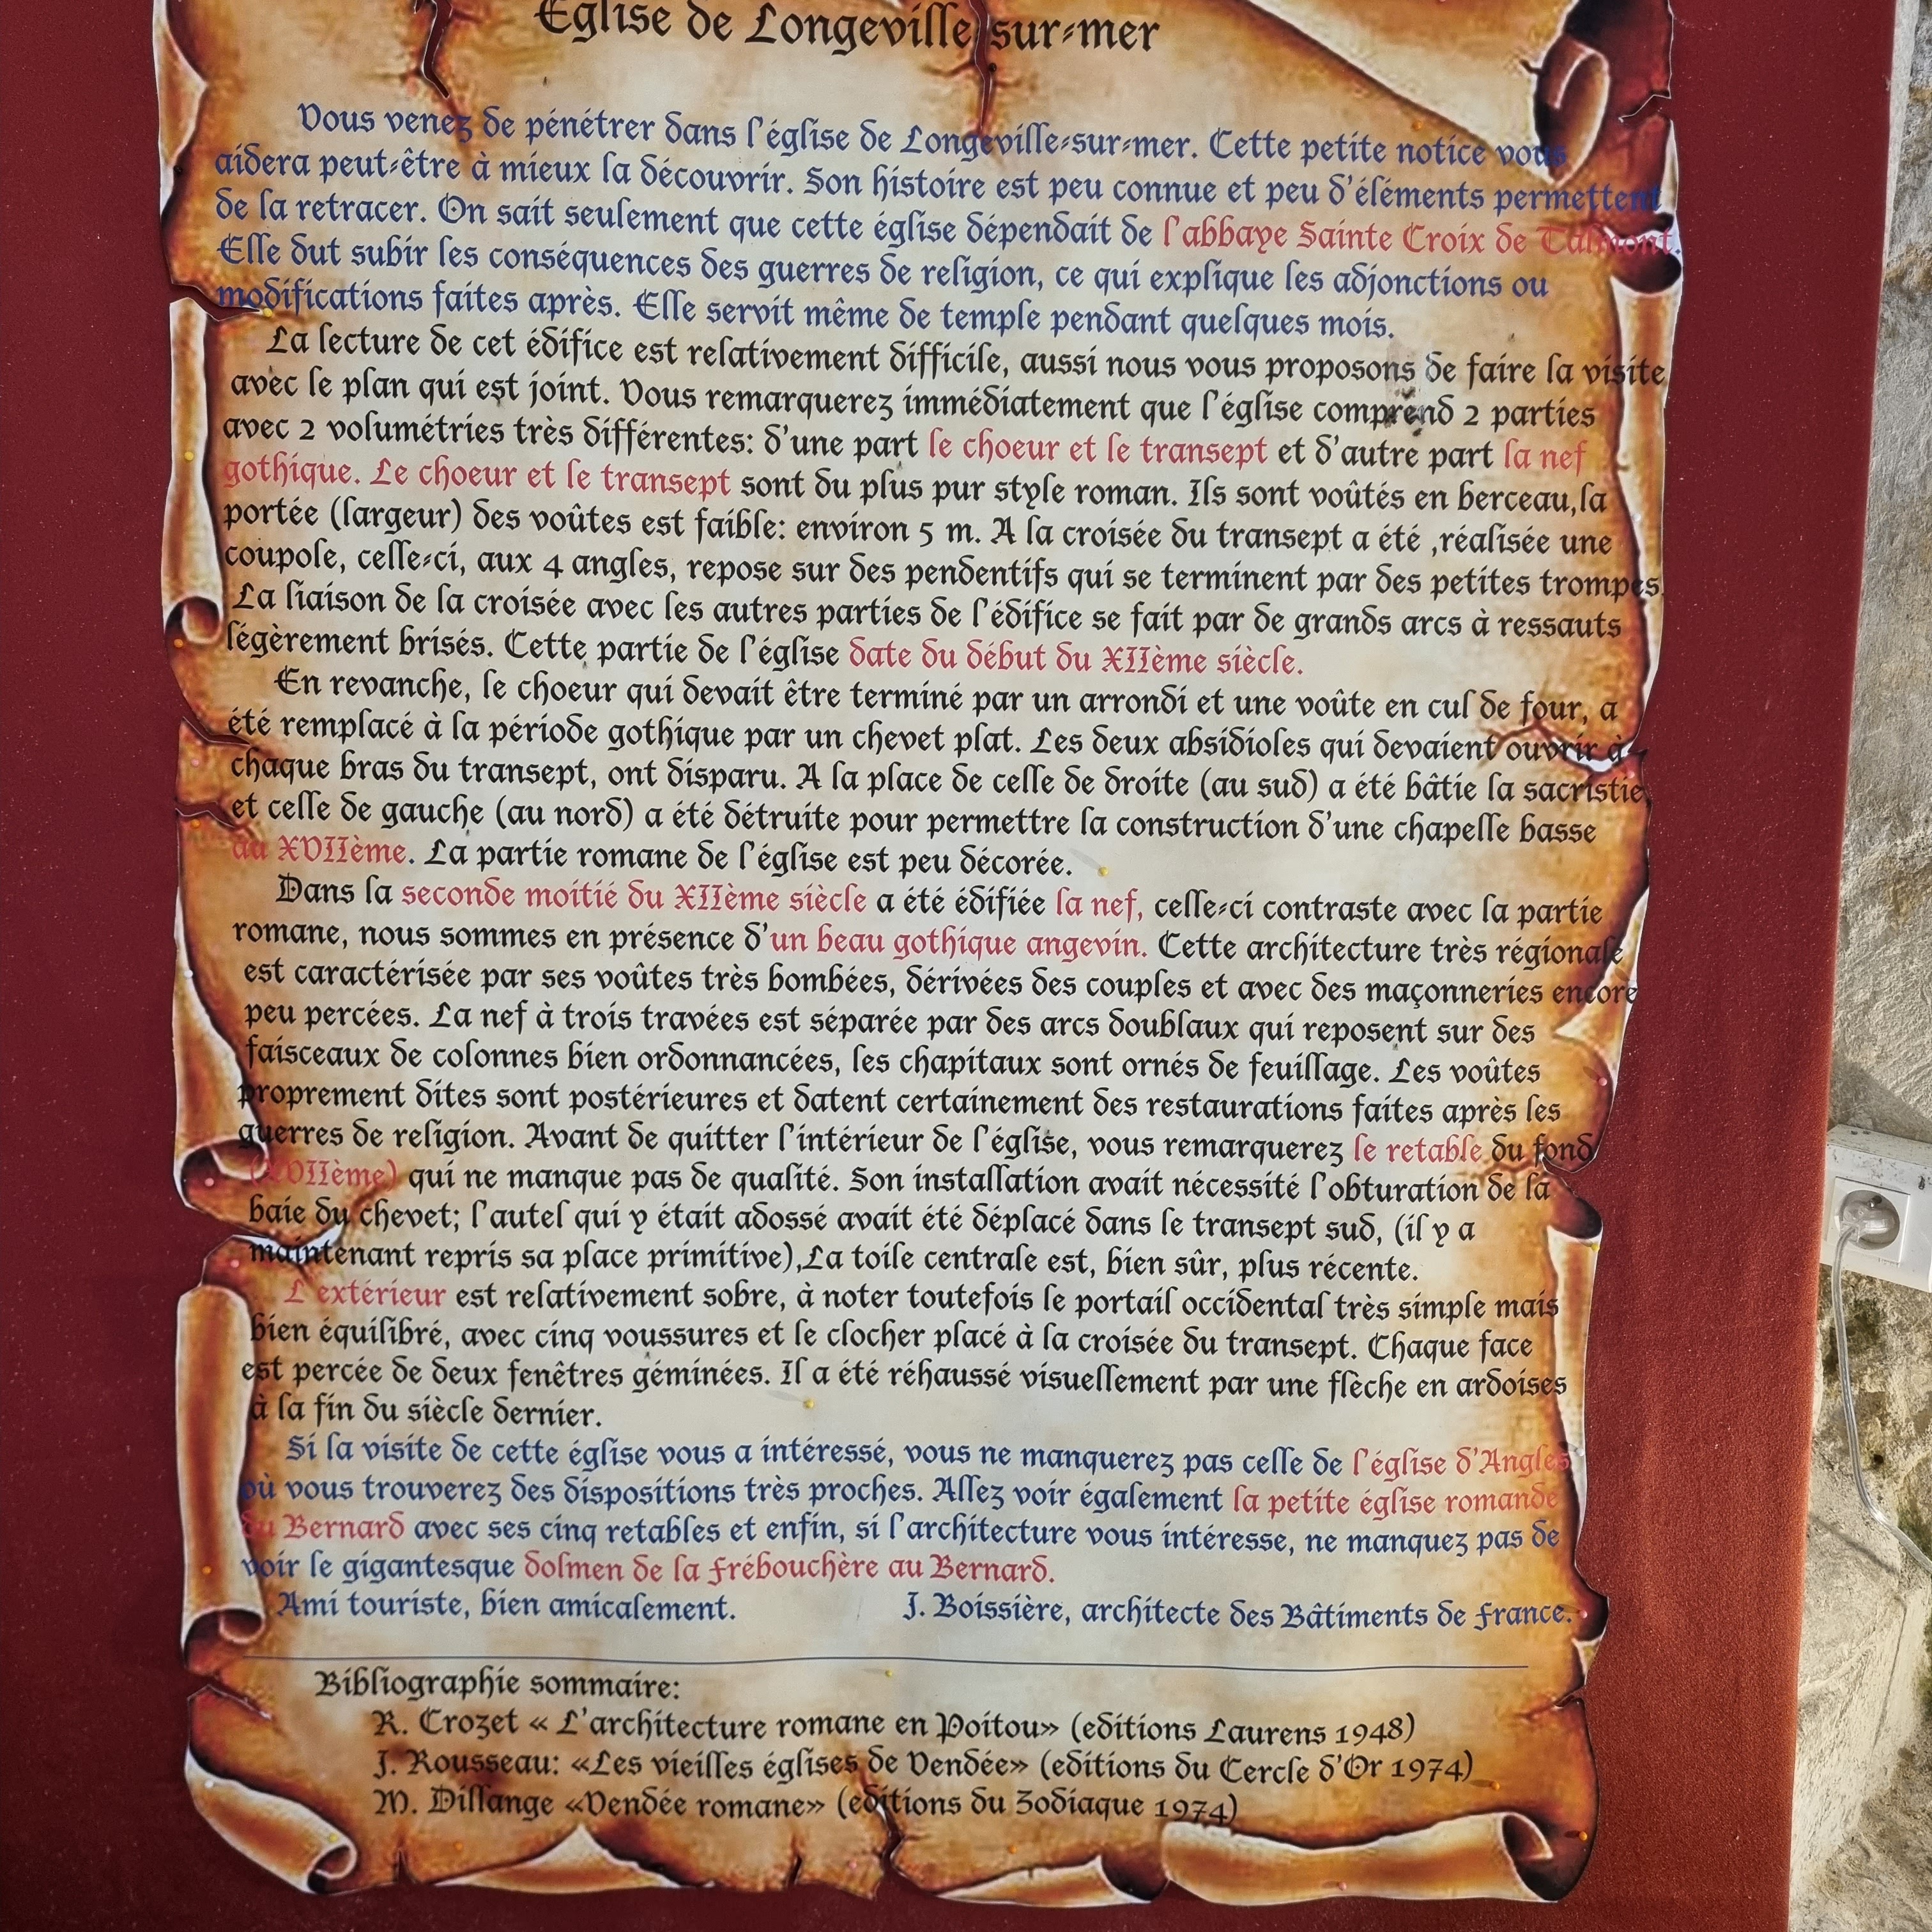 Église de Longeville sur-mer
Vous venez de pénétrer dans l'église de Longeville-sur-mer. Cette petite notice vous
aidera peut-être à mieux la découvrir. Son histoire est peu connue et peu d'éléments permettent
de la retracer. On sait seulement que cette église dépendait de l'abbaye Sainte Croix de Talmont.
Elle dut subir les conséquences des guerres de religion, ce qui explique les adjonctions ou
modifications faites après. Elle servit même de temple pendant quelques mois.
La lecture de cet édifice est relativement difficile, aussi nous vous proposons de faire la visite
avec le plan qui est joint. Vous remarquerez immédiatement que l'église comprend 2 parties
avec 2 volumétries très différentes: d'une part le choeur et le transept et d'autre part la nef
gothique. Le choeur et le transept sont du plus pur style roman. Ils sont voûtés en berceau,la
portée (largeur) des voûtes est faible: environ 5 m. A la croisée du transept a été ,réalisée une
coupole, celle-ci, aux 4 angles, repose sur des pendentifs qui se terminent par des petites trompes.
La liaison de la croisée avec les autres parties de l'édifice se fait par de grands arcs à ressauts
légèrement brisés. Cette partie de l'église date du début du XIIème siècle.
En revanche, le choeur qui devait être terminé par un arrondi et une voûte en cul de four, a
été remplacé à la période gothique par un chevet plat. Les deux absidioles qui devaient ouvrir à
chaque bras du transept, ont disparu. A la place de celle de droite (au sud) a été bâtie la sacristie
et celle de gauche (au nord) a été détruite pour permettre la construction d'une chapelle basse
au XVIIème. La partie romane de l'église est peu décorée.
Dans la seconde moitié du XIIème siècle a été édifiée la nef, celle-ci contraste avec la partie
romane, nous sommes en présence d'un beau gothique angevin. Cette architecture très régionale
est caractérisée par ses voûtes très bombées, dérivées des couples et avec des maçonneries encore
peu percées. La nef à trois travées est séparée par des arcs doublaux qui reposent sur des
faisceaux de colonnes bien ordonnancées, les chapitaux sont ornés de feuillage. Les voûtes
proprement dites sont postérieures et datent certainement des restaurations faites après les
guerres de religion. Avant de quitter l'intérieur de l'église, vous remarquerez le retable du fond
(XVIIème) qui ne manque pas de qualité. Son installation avait nécessité l'obturation de la
baie du chevet; l'autel qui y était adossé avait été déplacé dans le transept sud, (il y a
maintenant repris sa place primitive),La toile centrale est, bien sûr, plus récente.
L'extérieur est relativement sobre, à noter toutefois le portail occidental très simple mais
bien équilibré, avec cinq voussures et le clocher placé à la croisée du transept. Chaque face
est percée de deux fenêtres géminées. Il a été réhaussé visuellement par une flèche en ardoises
à la fin du siècle dernier.
Si la visite de cette église vous a intéressé, vous ne manquerez pas celle de l'église d'Angles
où vous trouverez des dispositions très proches. Allez voir également la petite église romande
du Bernard avec ses cinq retables et enfin, si l'architecture vous intéresse, ne manquez pas de
voir le gigantesque dolmen de la Frébouchère au Bernard.
Ami touriste, bien amicalement. J. Boissière, architecte des Bâtiments de France.
Bibliographie sommaire:
R. Crozet « L'architecture romane en Poitou» (editions Laurens 1948)
J. Rousseau: «Les vieilles églises de Vendée» (editions du Cercle d'Or 1974)
M. Dillange «Vendée romane» (editions du Zodiaque 1974)